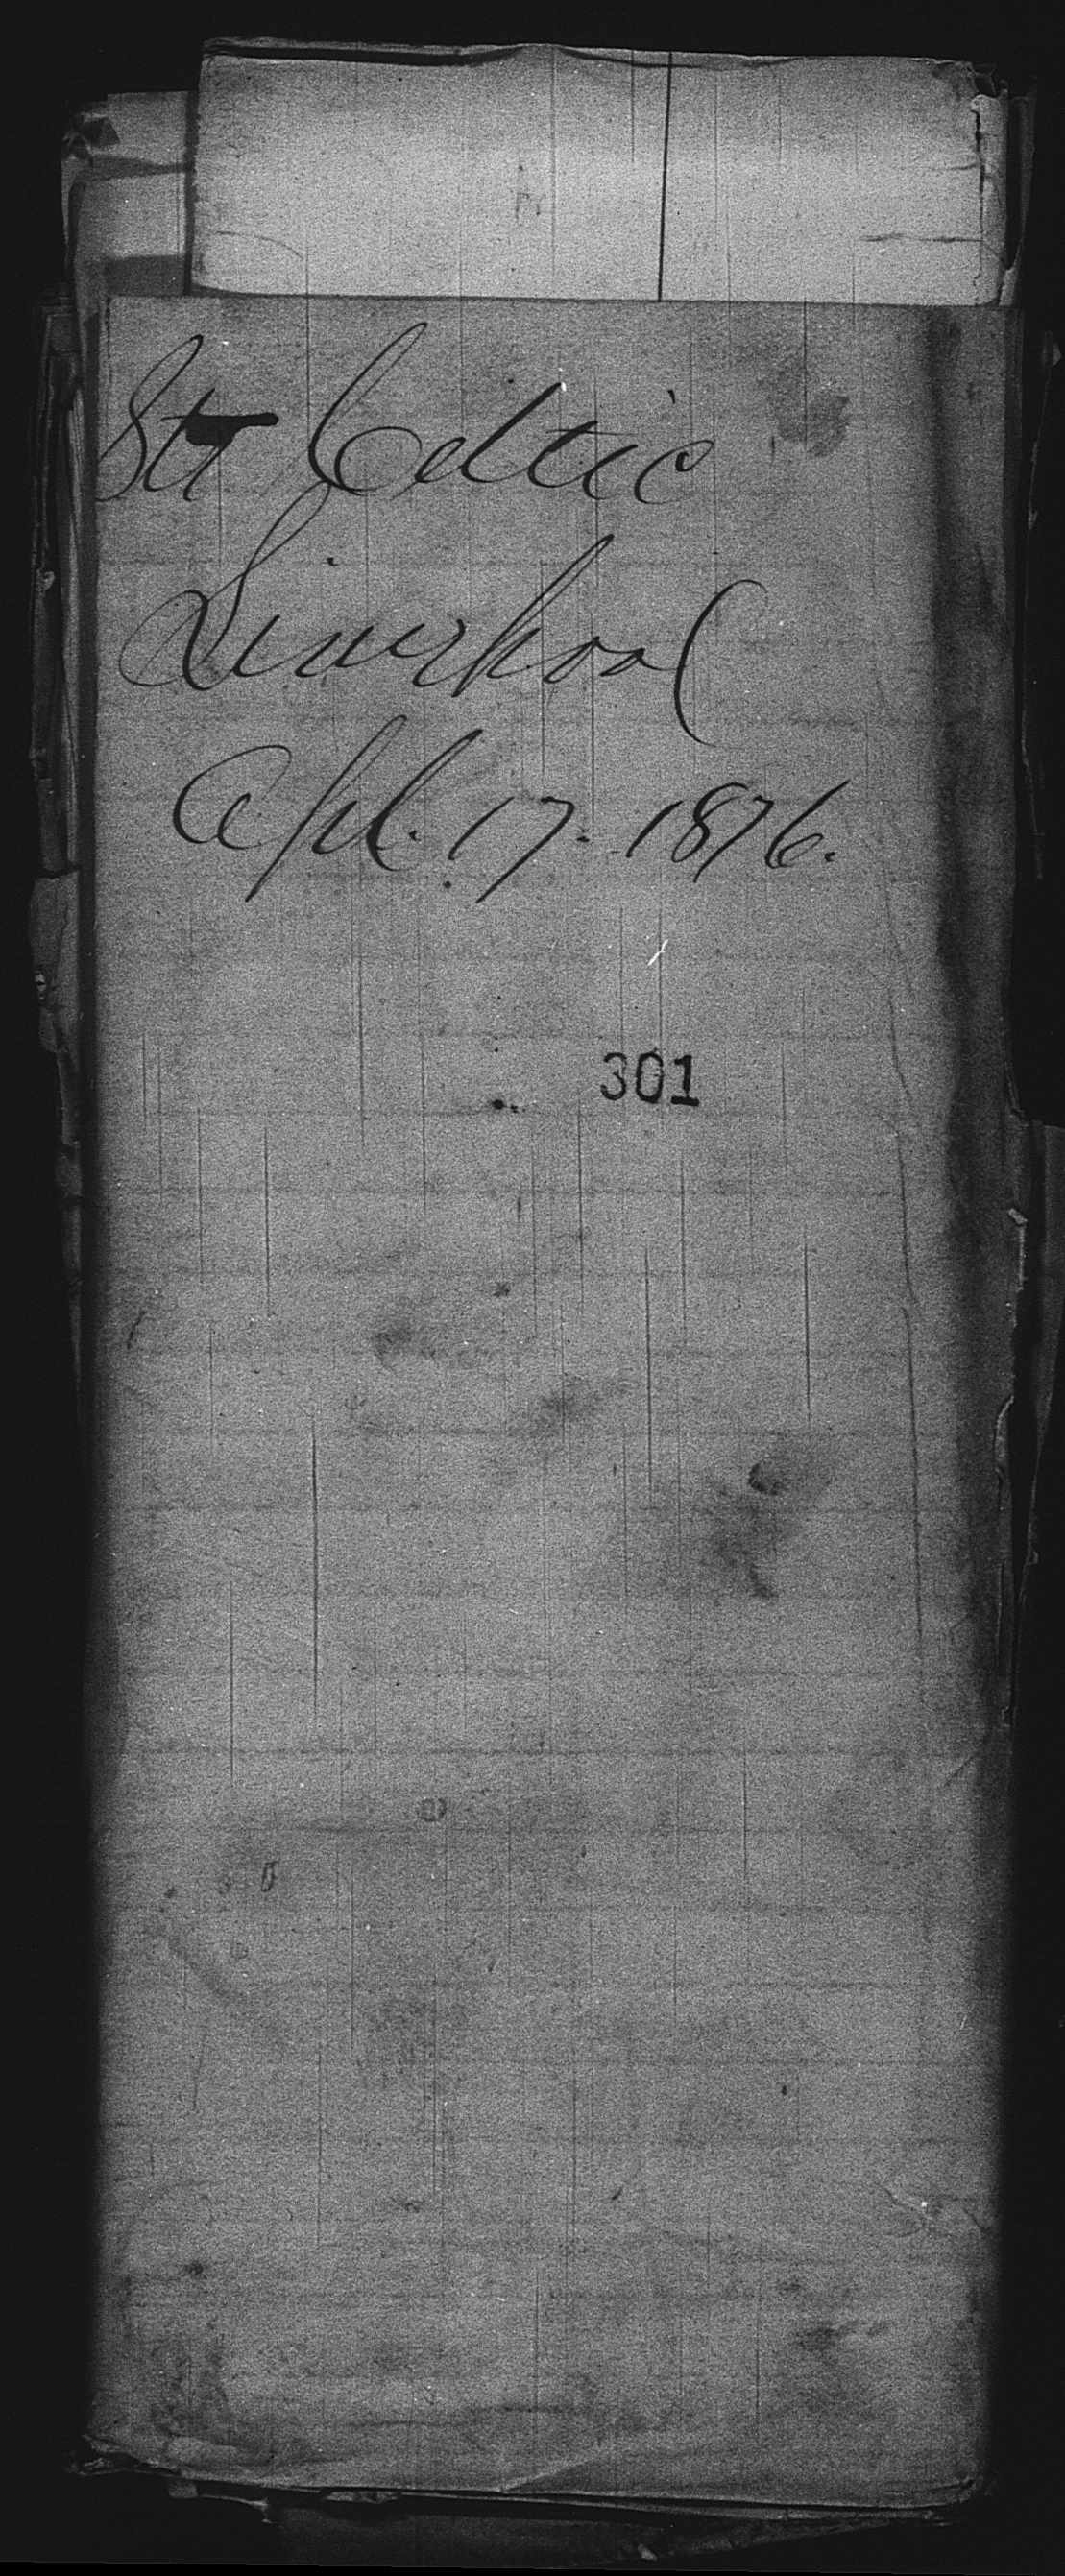 Str Celtic
Liverpool
Apl. 17. 1876.
301